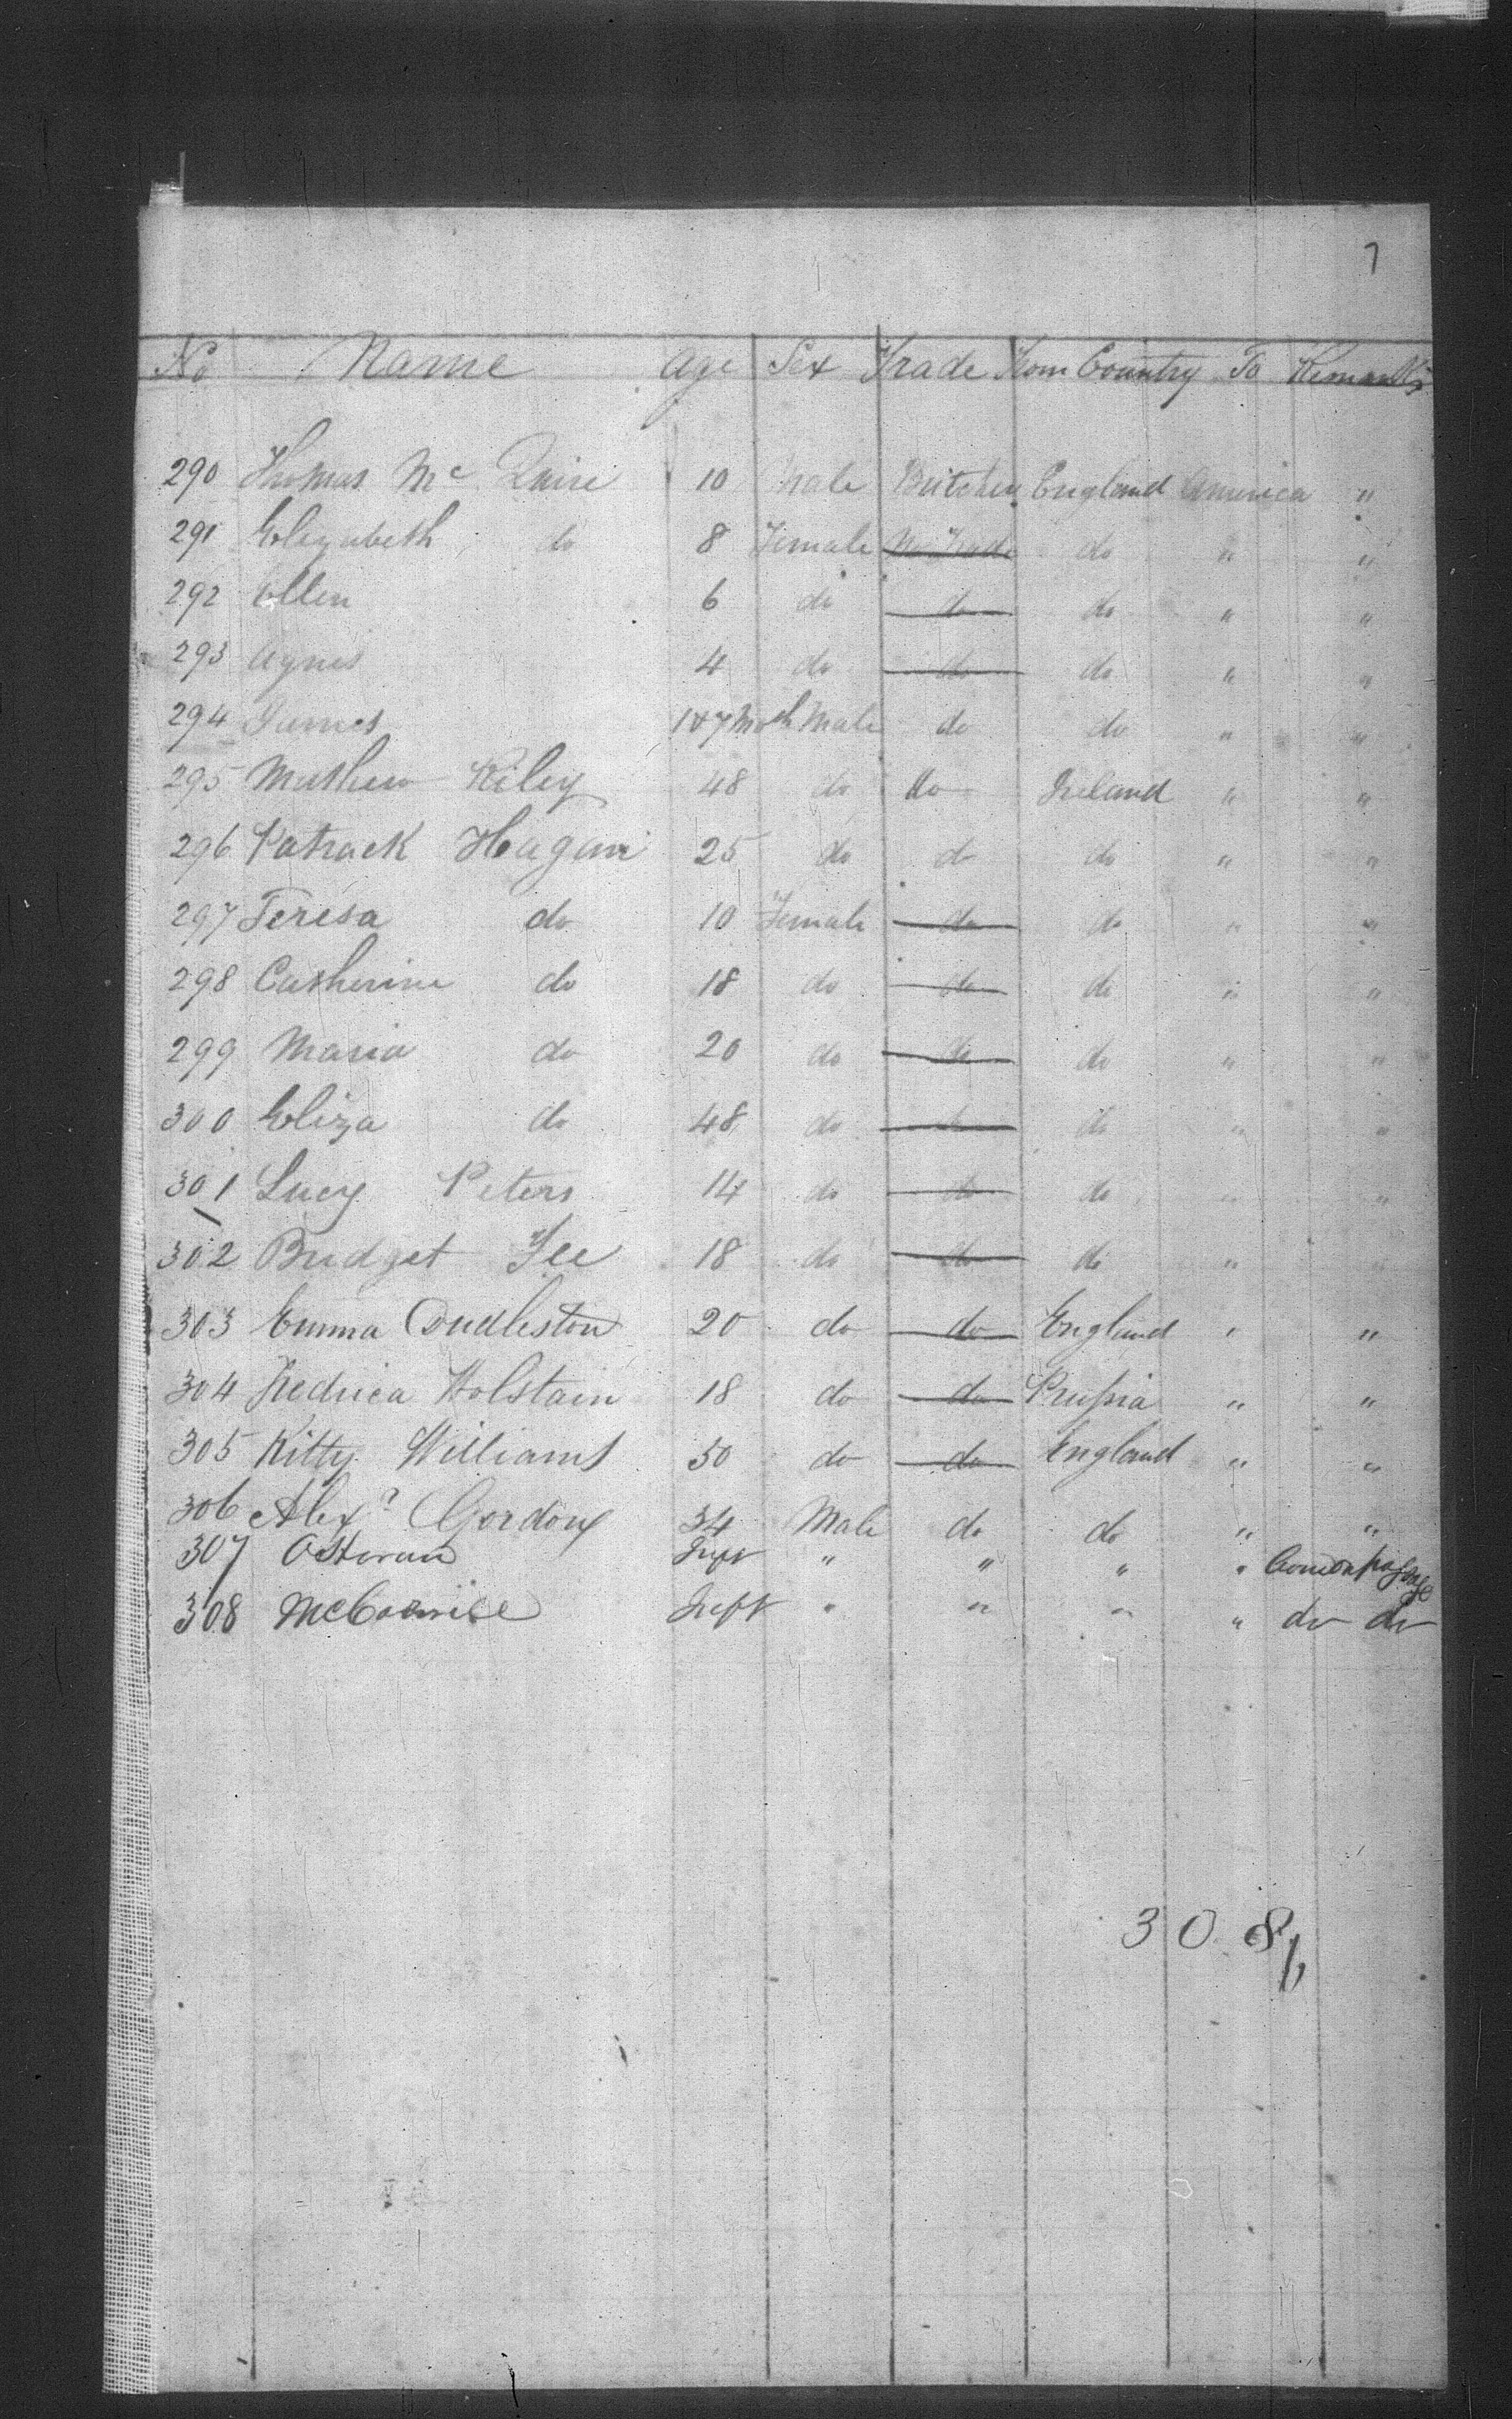 7
No Name Age Sex Trade From Country To Remarks
290 Thomas Mc Quire 10 Male Butcher England America "
291 Elizabeth do 8 Female No Trade do " "
292 Ellen 6 do do do " "
293 Agnes 4 do do do " "
294 James 1 & 7 Moth Male do do " "
295 Mathew Riley 48 do do Ireland " "
296 Patrack Hagan 25 do do do " "
297 Teresa do 10 Female do do " "
298 Catherine do 18 do do do " "
299 Maria do 20 do do do " "
300 Eliza do 48 do do do " "
301 Lucy Peters 14 do do do " "
302 Bridget Fee 18 do do do "
303 Emma Dudleston 20 do do England " "
304 Fredrica Holstain 18 do do Prussia " "
305 Kitty Williams 50 do do England " "
306 Alexr Gordon 34 Male do do " "
307 Inft " " " "
308 Inft " " " " do do
308